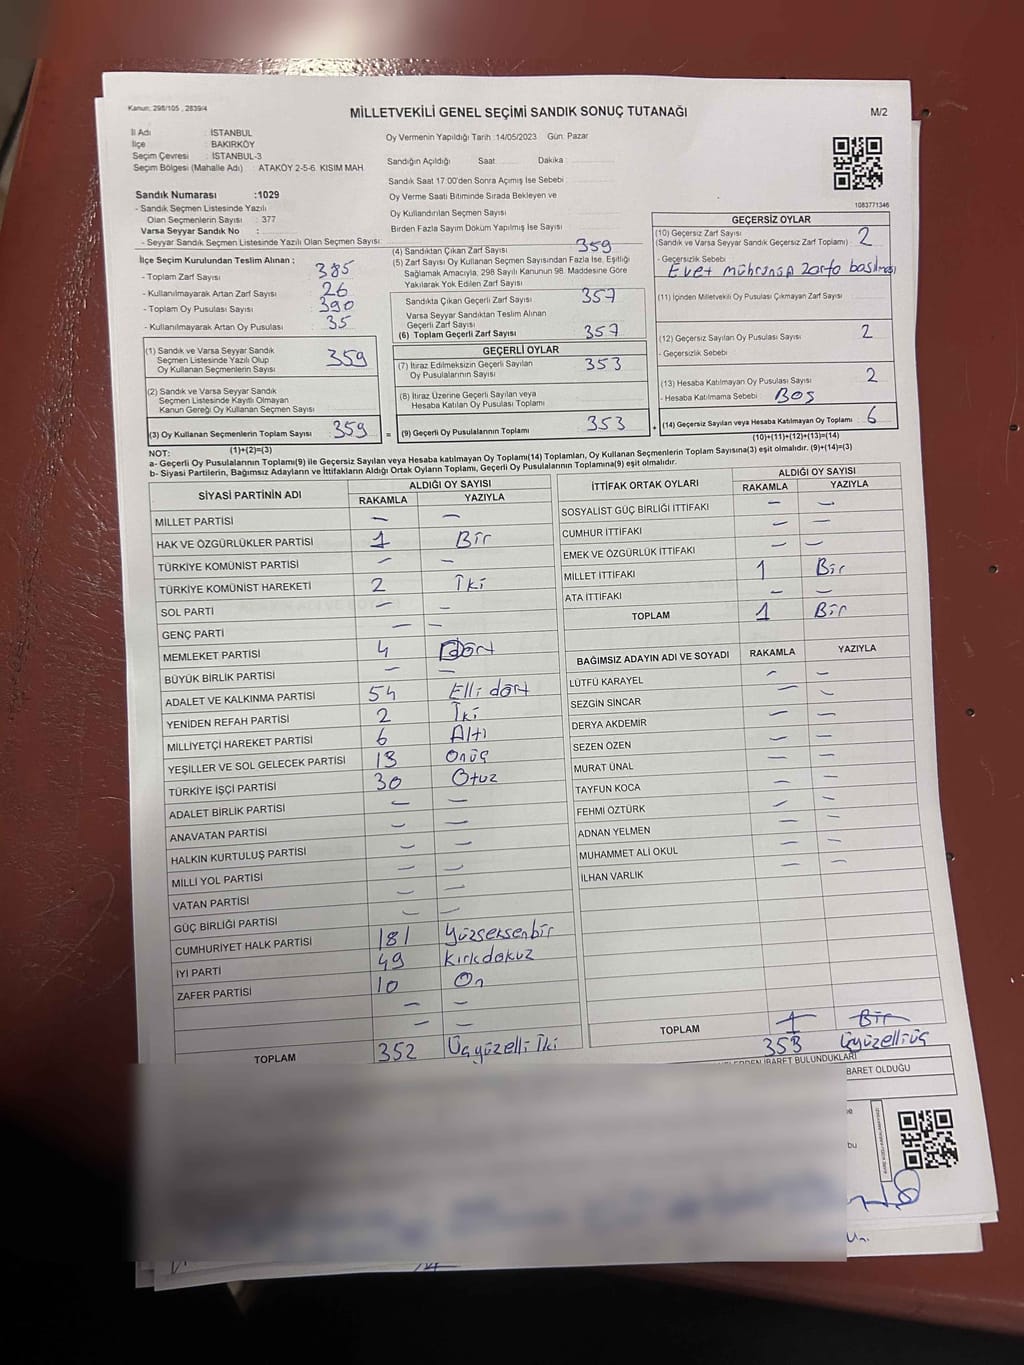 Kanun: 298/105 , 2839/4
MİLLETVEKİLİ GENEL SEÇİMİ SANDIK SONUÇ TUTANAĞI
M/2
İl Adı : İSTANBUL
İlçe : BAKIRKÖY
Seçim Çevresi : İSTANBUL-3
Seçim Bölgesi (Mahalle Adı) : ATAKÖY 2-5-6. KISIM MAH.
Sandık Numarası :1029
- Sandık Seçmen Listesinde Yazılı
Olan Seçmenlerin Sayısı : 377
Varsa Seyyar Sandık No :
- Seyyar Sandık Seçmen Listesinde Yazılı Olan Seçmen Sayısı:
Oy Vermenin Yapıldığı Tarih :14/05/2023 Gün: Pazar
Sandığın Açıldığı Saat Dakika
Sandık Saat 17.00'den Sonra Açımış İse Sebebi
Oy Verme Saati Bitiminde Sırada Bekleyen ve
Oy Kullandırılan Seçmen Sayısı
Birden Fazla Sayım Döküm Yapılmış İse Sayısı
1083771346
İlçe Seçim Kurulundan Teslim Alınan ;
- Toplam Zarf Sayısı : 385
- Kullanılmayarak Artan Zarf Sayısı : 26
- Toplam Oy Pusulası Sayısı : 390
- Kullanılmayarak Artan Oy Pusulası : 35
(1) Sandık ve Varsa Seyyar Sandık
Seçmen Listesinde Yazılı Olup
Oy Kullanan Seçmenlerin Sayısı : 359
(2) Sandık ve Varsa Seyyar Sandık
Seçmen Listesinde Kaydı Olmayan
Kanun Gereği Oy Kullanan Seçmen Sayısı
(3) Oy Kullanan Seçmenlerin Toplam Sayısı : 359
(1)+(2)=(3)
(4) Sandıktan Çıkan Zarf Sayısı 359
(5) Zarf Sayısı Oy Kullanan Seçmen Sayısından Fazla İse, Eşitliği
Sağlamak Amacıyla, 298 Sayılı Kanunun 98. Maddesine Göre
Yakılarak Yok Edilen Zarf Sayısı
Sandıkta Çıkan Geçerli Zarf Sayısı : 357
Varsa Seyyar Sandıktan Teslim Alınan
Geçerli Zarf Sayısı
(6) Toplam Geçerli Zarf Sayısı : 357
GEÇERLİ OYLAR
(7) İtiraz Edilmeksizin Geçerli Sayılan
Oy Pusulalarının Sayısı : 353
(8) İtiraz Üzerine Geçerli Sayılan veya
Hesaba Katılan Oy Pusulası Toplamı
= (9) Geçerli Oy Pusulalarının Toplamı : 353
GEÇERSİZ OYLAR
(10) Geçersiz Zarf Sayısı
(Sandık ve Varsa Seyyar Sandık Geçersiz Zarf Toplamı) : 2
- Geçersizlik Sebebi
Evet mührünün zarfa basılması
(11) İçinden Milletvekili Oy Pusulası Çıkmayan Zarf Sayısı
(12) Geçersiz Sayılan Oy Pusulası Sayısı : 2
- Geçersizlik Sebebi
(13) Hesaba Katılmayan Oy Pusulası Sayısı : 2
- Hesaba Katılmama Sebebi BOŞ
+ (14) Geçersiz Sayılan veya Hesaba Katılmayan Oy Toplamı : 6
(10)+(11)+(12)+(13)=(14)
NOT:
a- Geçerli Oy Pusulalarının Toplamı(9) ile Geçersiz Sayılan veya Hesaba katılmayan Oy Toplamı(14) Toplamları, Oy Kullanan Seçmenlerin Toplam Sayısına(3) eşit olmalıdır. (9)+(14)=(3)
b- Siyasi Partilerin, Bağımsız Adayların ve İttifakların Aldığı Ortak Oyların Toplamı, Geçerli Oy Pusulalarının Toplamına(9) eşit olmalıdır.
SİYASİ PARTİNİN ADI ALDIĞI OY SAYISI
RAKAMLA YAZIYLA
MİLLET PARTİSİ — —
HAK VE ÖZGÜRLÜKLER PARTİSİ 1 Bir
TÜRKİYE KOMÜNİST PARTİSİ — —
TÜRKİYE KOMÜNİST HAREKETİ 2 İki
SOL PARTİ — —
GENÇ PARTİ — —
MEMLEKET PARTİSİ 4 Dört
BÜYÜK BİRLİK PARTİSİ — —
ADALET VE KALKINMA PARTİSİ 54 Elli dört
YENİDEN REFAH PARTİSİ 2 İki
MİLLİYETÇİ HAREKET PARTİSİ 6 Altı
YEŞİLLER VE SOL GELECEK PARTİSİ 13 Onüç
TÜRKİYE İŞÇİ PARTİSİ 30 Otuz
ADALET BİRLİK PARTİSİ — —
ANAVATAN PARTİSİ — —
HALKIN KURTULUŞ PARTİSİ — —
MİLLİ YOL PARTİSİ — —
VATAN PARTİSİ — —
GÜÇ BİRLİĞİ PARTİSİ — —
CUMHURİYET HALK PARTİSİ 181 Yüzseksenbir
İYİ PARTİ 49 Kırkdokuz
ZAFER PARTİSİ 10 On
— —
— —
TOPLAM 352 Üçyüzelli İki
İTTİFAK ORTAK OYLARI ALDIĞI OY SAYISI
RAKAMLA YAZIYLA
SOSYALİST GÜÇ BİRLİĞİ İTTİFAKI — —
CUMHUR İTTİFAKI — —
EMEK VE ÖZGÜRLÜK İTTİFAKI — —
MİLLET İTTİFAKI 1 Bir
ATA İTTİFAKI — —
TOPLAM 1 Bir
BAĞIMSIZ ADAYIN ADI VE SOYADI RAKAMLA YAZIYLA
LÜTFÜ KARAYEL — —
SEZGİN SİNCAR — —
DERYA AKDEMİR — —
SEZEN ÖZEN — —
MURAT ÜNAL — —
TAYFUN KOCA — —
FEHMİ ÖZTÜRK — —
ADNAN YELMEN — —
MUHAMMET ALİ OKUL — —
İLHAN VARLIK — —
TOPLAM 1 Bir
353 Üçyüzelliüç
İBARET BULUNDUKLARI
BARET OLDUĞU